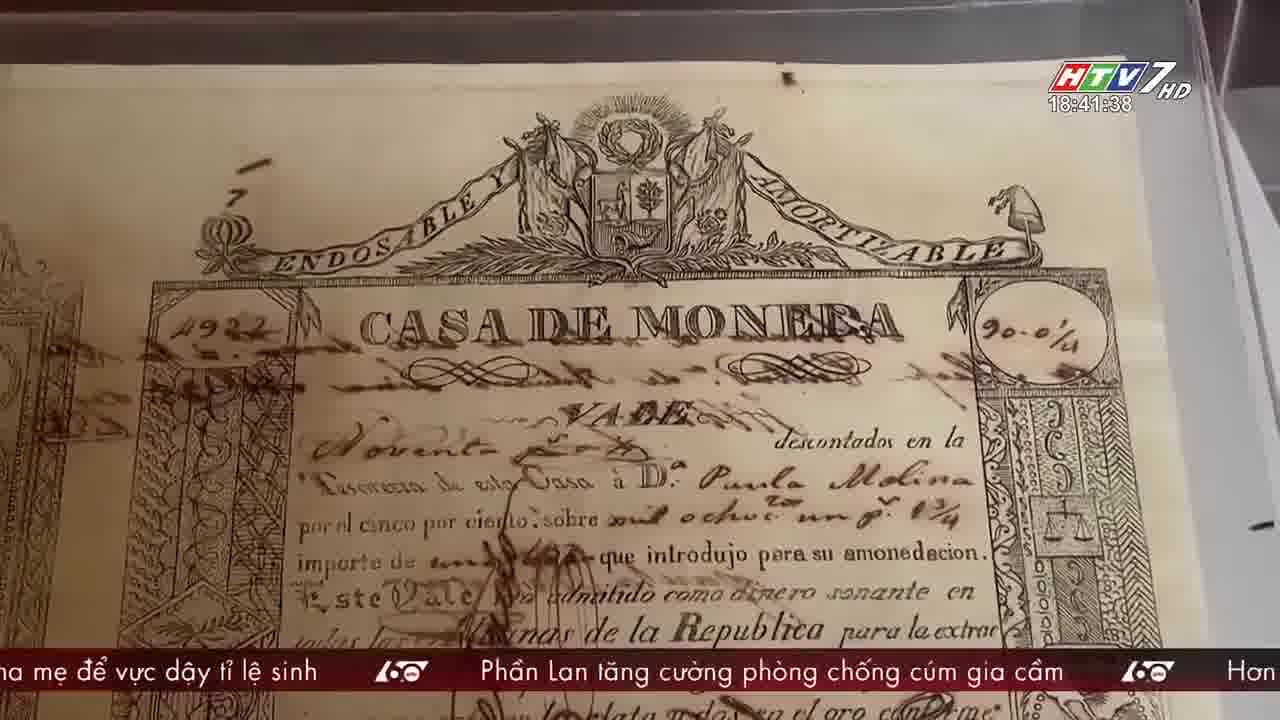 HTV7 HD
18:41:38
ENDOSABLE Y AMORTIZABLE
4922
CASA DE MONEDA
90-0¼
VALE
Noventa descontados en la
Tesoreria de esta Casa á D.ª Paula Molina
por el cinco por ciento, sobre mil ochoc.tos un p.s 1¾
importe de que introdujo para su amonedacion.
Este Vale admitido como dinero sonante en
de la Republica para la extrac
la plata en el oro conforme
ha mẹ để vực dậy tỉ lệ sinh
60 Phần Lan tăng cường phòng chống cúm gia cầm
60 Hơn